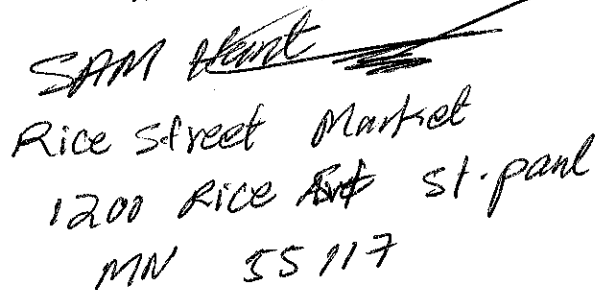 SAM
Rice Street Market
1200 Rice St. paul
MN 55117